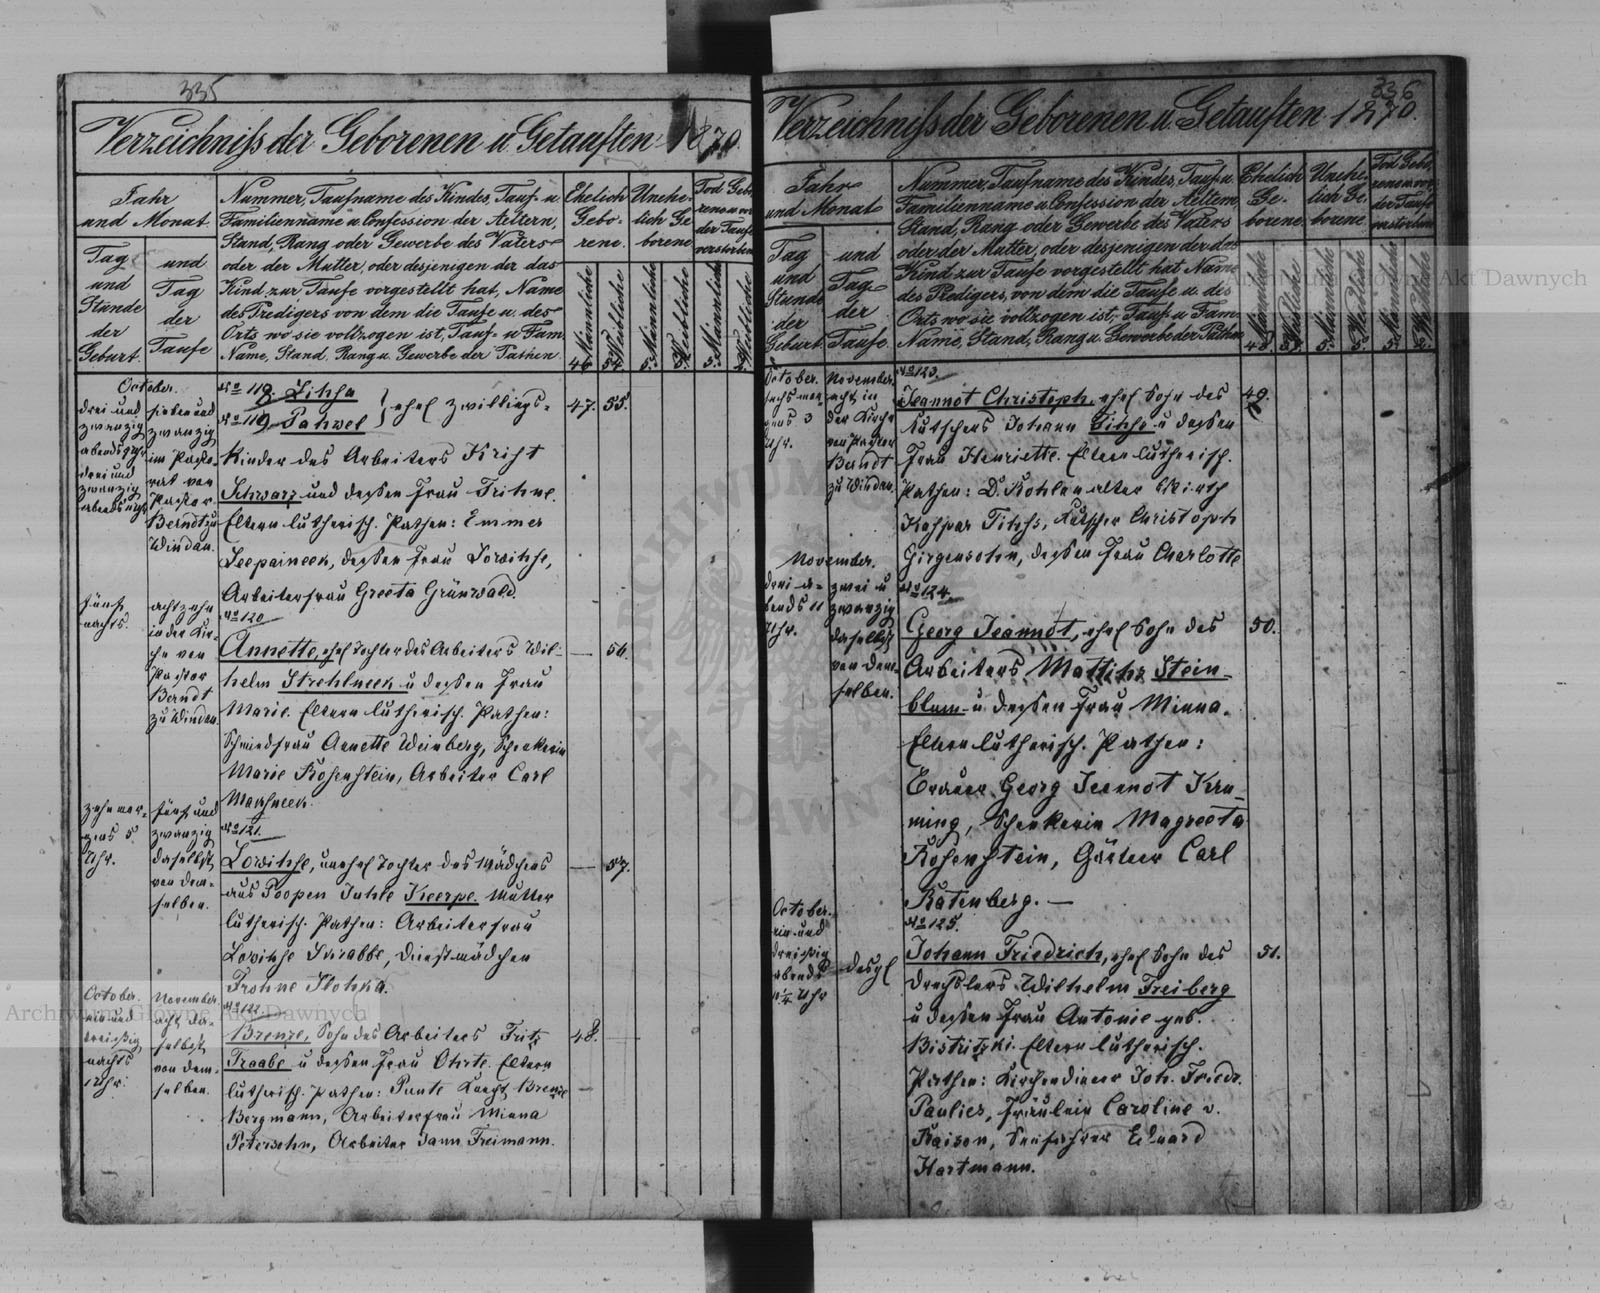 335
Verzeichniß der Geborenen u. Getauften 1870.
Jahr
und Monat
Tag
und
Stunde
der
Geburt.
und
Tag
der
Taufe
Nummer, Taufname des Kindes, Tauf- u.
Familienname u. Confession der Aeltern,
Stand, Rang oder Gewerbe des Vaters
oder der Mutter, oder desjenigen der das
Kind zur Taufe vorgestellt hat, Name
des Predigers von dem die Taufe u. des
Orts wo sie vollzogen ist, Tauf- u. Fam.
Name, Stand, Rang u. Gewerbe der Pathen.
Ehelich
Gebo-
rene.
Unehe-
lich Ge
borene
Tod Gebo
rene u. vor
der Taufe
verstorben
Männliche
Weibliche
Männliche
Weibliche
Männliche
Weibliche
46.
54.
5.
5.
October.
drei und
zwanzig
abends
drei und
zwanzig
abends
sieben und
zwanzig
im Pasto-
rat von
Pastor
Berndt zu
Windau.
No 118. Lihsa
No 119. Pahwel } ehel Zwillings-
47. 55.
Kinder des Arbeiters Krist
Schwarz und dessen Frau Trihne.
Eltern lutherisch. Pathen: Emmer
Leeparneek, dessen Frau Lowihse,
Arbeiterfrau Greeta Grünwald.
fünf
nachts.
achtzehn
in der Kir-
che von
Pastor
Berndt
zu Windau.
No 120
Annette, ehel Tochter des Arbeiters Wil-
— 56.
helm Strehlneek u dessen Frau
Marie. Eltern lutherisch. Pathen:
Schmiedfrau Annette Weinberg, Schenkerin
Marie Rosenstein, Arbeiter Carl
zehn mor-
gens 5
Uhr.
fünf und
zwanzig
daselbst
von dem-
selben.
No 121.
Lowihse, unehel Tochter des Mädchens
— 57.
aus Poopen Juhle Keerpe. Mutter
lutherisch. Pathen: Arbeiterfrau
Lowihse Skrabbe, Dienstmädchen
Trohne Stohka.
October.
ein und
dreißig
nachts
1 Uhr.
November.
acht da-
selbst
von dem-
selben.
No 122.
Brenze, Sohn des Arbeiters Fritz
48. —
Traabe u dessen Frau Ohrte. Eltern
lutherisch. Pathen: Knecht Brenze
Bergmann, Arbeiterfrau Minna
Petersohn, Arbeiter Jann Freimann.
336
Verzeichniß der Geborenen u. Getauften 1870.
Jahr
und Monat
Tag
und
Stunde
der
Geburt.
und
Tag
der
Taufe.
Nummer, Taufname des Kindes, Tauf- u.
Familienname u. Confession der Aeltern,
Stand, Rang oder Gewerbe des Vaters
oder der Mutter, oder desjenigen der das
Kind zur Taufe vorgestellt hat, Name
des Predigers, von dem die Taufe u. des
Orts wo sie vollzogen ist, Tauf- u. Fam.
Name, Stand, Rang u. Gewerbe der Pathen
Ehelich
Ge-
borene.
Unehe-
lich Ge
borene
Tod Gebo
rene u. vor
der Taufe
verstorben
Männliche
Weibliche
Männliche
Weibliche
Männliche
Weibliche
October.
sechs mor-
gens 3
Uhr.
November.
acht in
der Kirche
von Pastor
Berndt
zu Windau.
No 123.
Jeannot Christoph, ehel Sohn des
49.
Kutschers Johann Tihse u dessen
Frau Henriette. Eltern lutherisch.
Pathen:
Kaspar Tihss, Kutscher Christoph
Girgensohn, dessen Frau Charlotte
November.
drei a-
bends 11
Uhr.
zwei u
zwanzig
daselbst
von dem-
selben.
No 124.
Georg Jeannot, ehel Sohn des
50.
Arbeiters Mattihs Stein-
blum u dessen Frau Minna.
Eltern lutherisch. Pathen:
Brauer Georg Jeannot Kru-
ming, Schenkerin Magreeta
Rosenstein, Gärtner Carl
Katenberg. —
October.
ein und
dreißig
abends
11 1/4 Uhr
desgl
No 125.
Johann Friedrich, ehel Sohn des
51.
Drechslers Wilhelm Freiberg
u dessen Frau Antonie geb.
Bistritzki. Eltern lutherisch.
Pathen: Kirchendiener Joh. Friedr.
Paulies, Fräulein Caroline v.
Raison, Seefahrer Eduard
Hartmann.
Archiwum Główne Akt Dawnych
Archiwum Główne Akt Dawnych